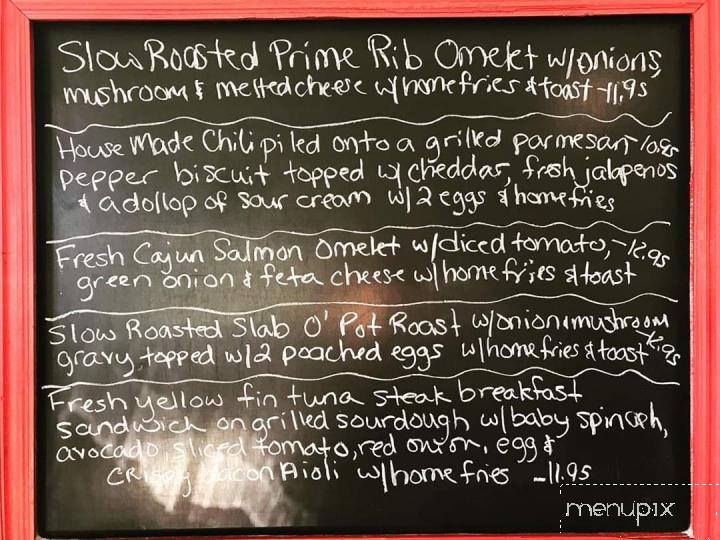 Slow Roasted Prime Rib Omelet w/onions,
mushroom & melted cheese w/homefries & toast -11.95
House Made Chili piled onto a grilled parmesan -10.95
pepper biscuit topped w/ cheddar, fresh jalapenos
& a dollop of sour cream w/2 eggs & homefries
Fresh Cajun Salmon Omelet w/diced tomato, -12.95
green onion & feta cheese w/homefries & toast
Slow Roasted Slab O' Pot Roast w/onion & mushroom
gravy, topped w/2 poached eggs w/homefries & toast 12.95
Fresh yellow fin tuna steak breakfast
sandwich on grilled sourdough w/baby spinach,
avocado, sliced tomato, red onion, egg &
crispy bacon Aioli w/homefries -11.95
menupix